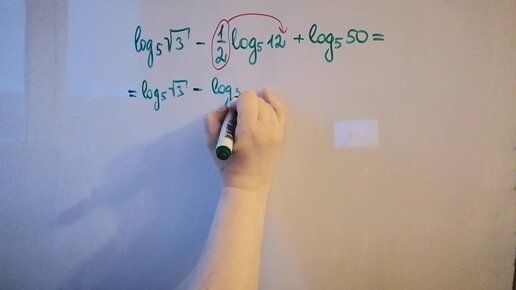 log₅√3 - 1/2 log₅12 + log₅50 =
= log₅√3 - log₅